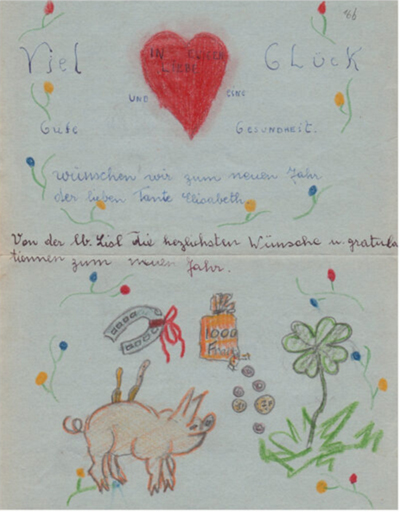 Viel Glück
IN
LIEBE
UND EINE
Gute Gesundheit.
wünschen wir zum neuen Jahr
der lieben Tante Elisabeth.
Von der lb. Lisl die herzlichsten Wünsche u. gratula
zum neuen Jahr.
1000